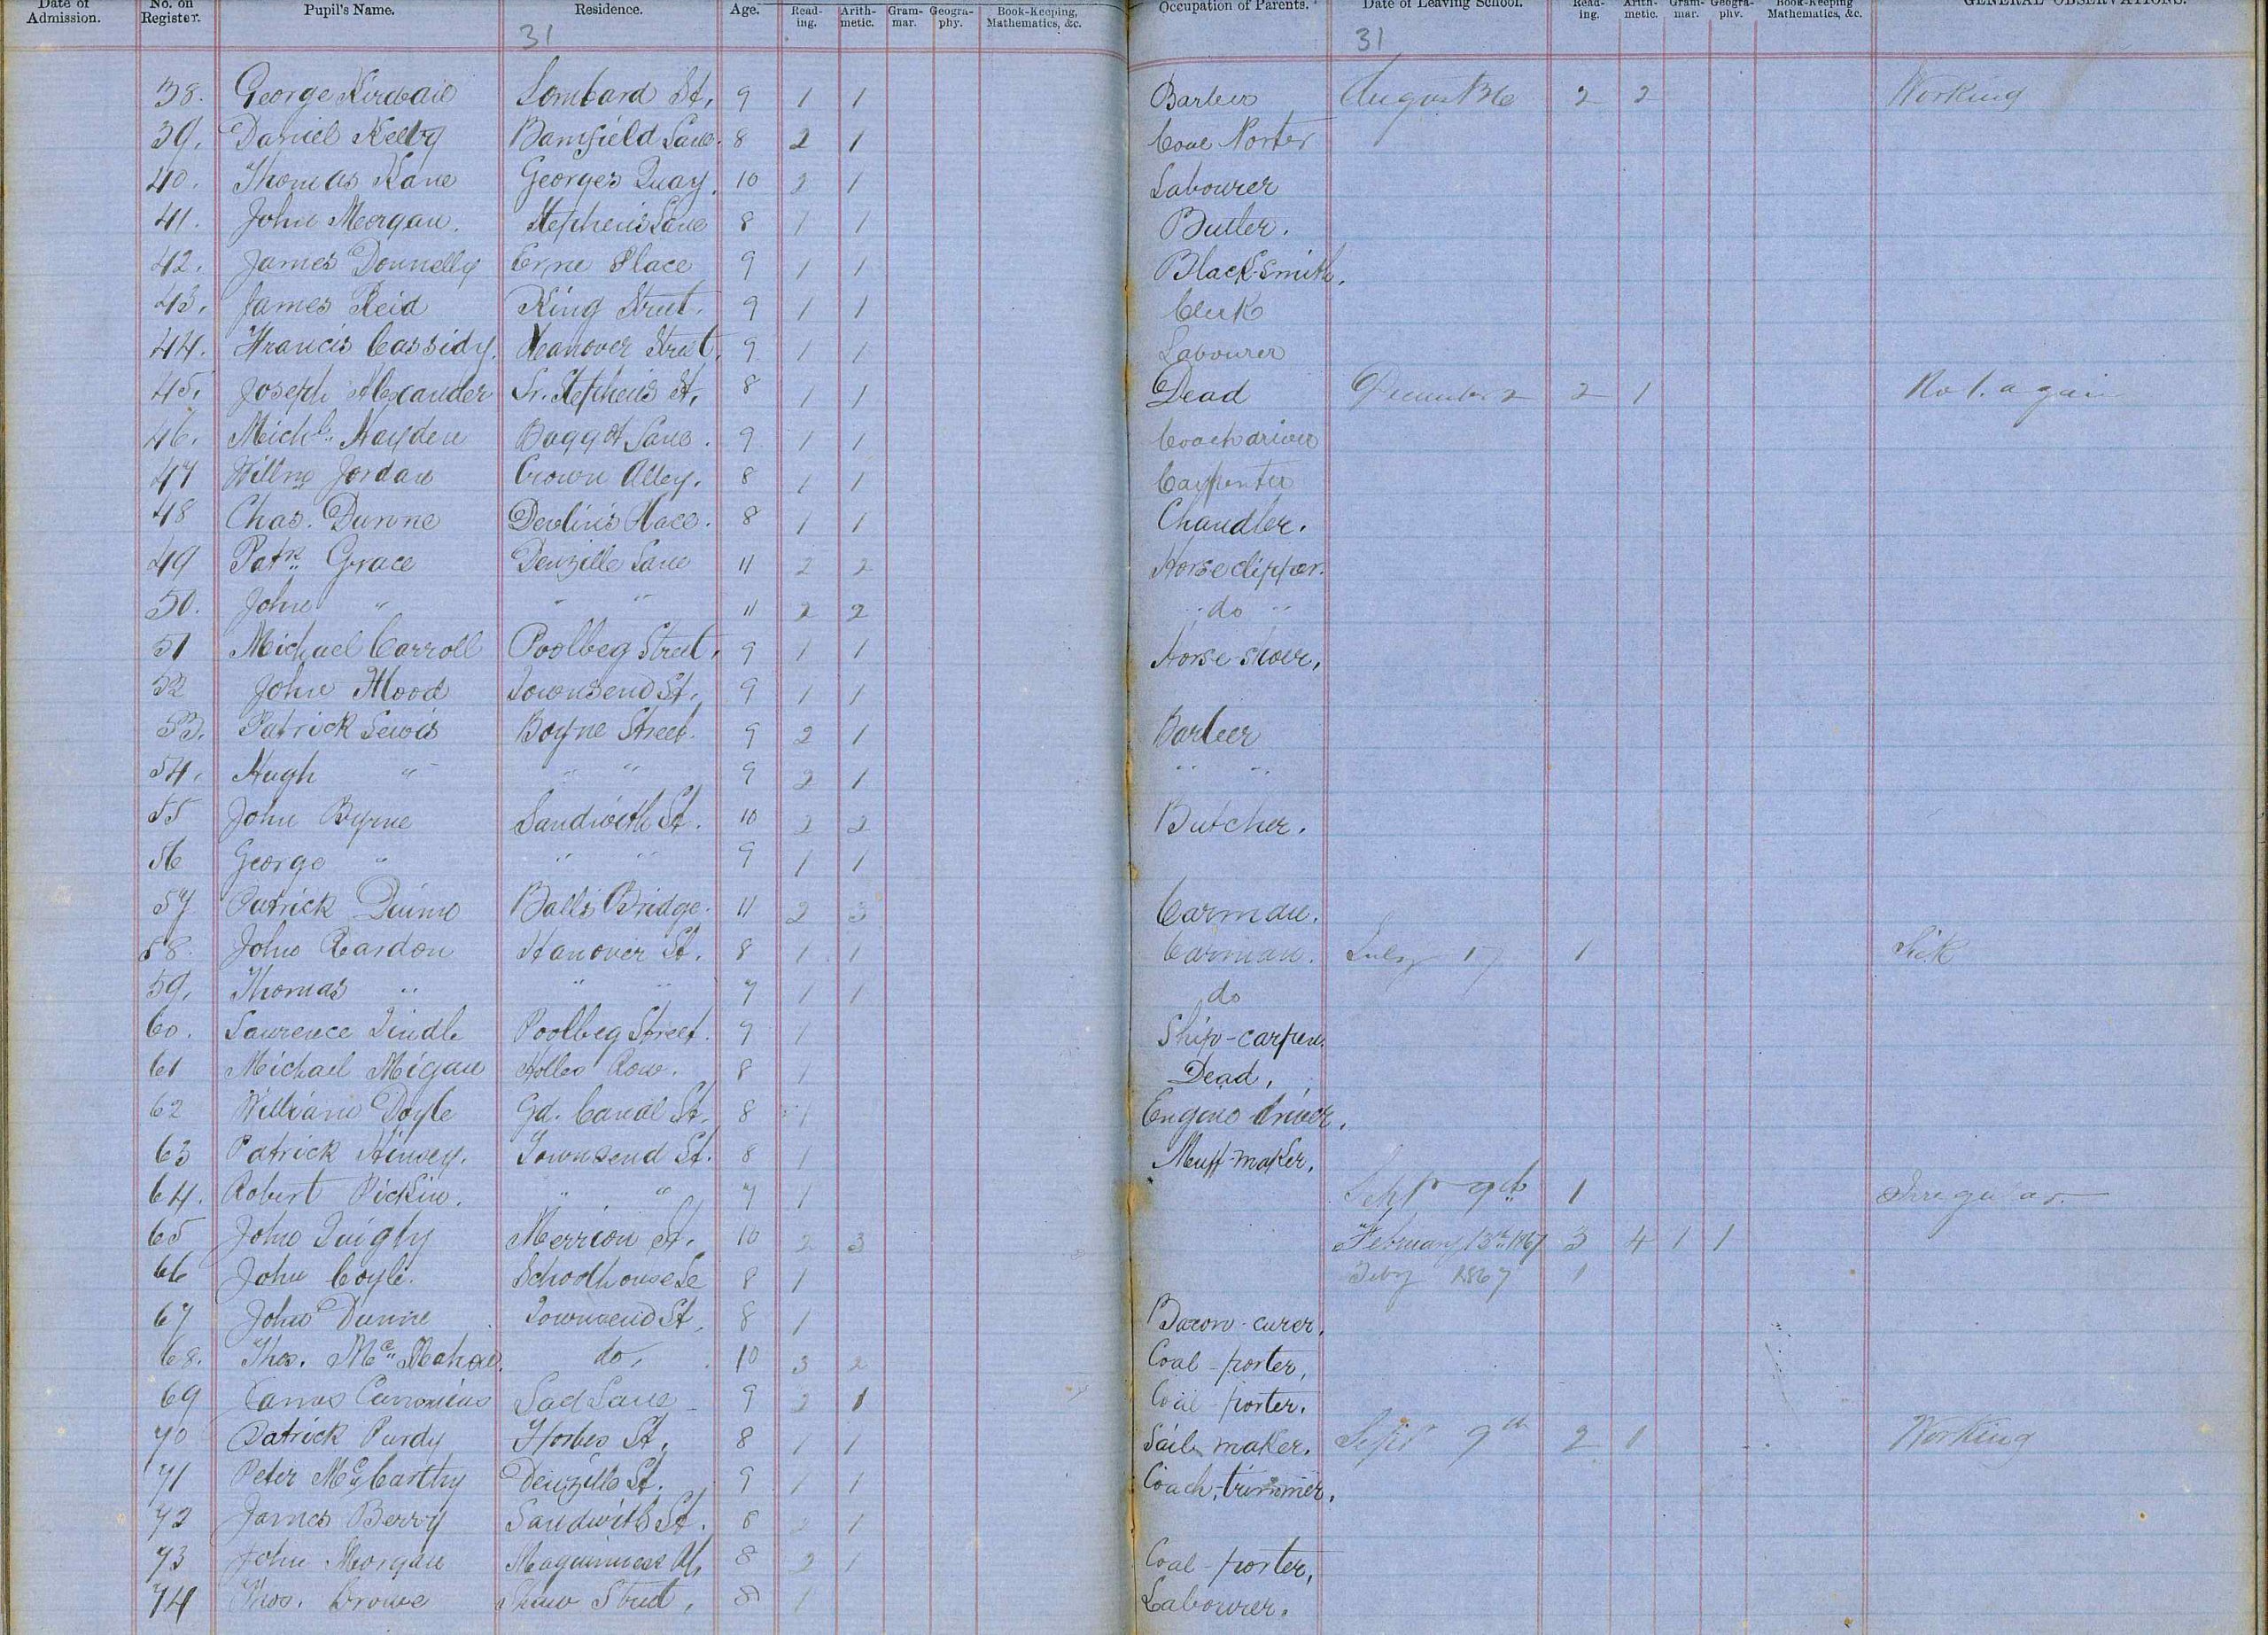 Date of Admission. No. on Register. Pupil's Name. Residence. Age. Read-ing. Arith-metic. Gram-mar. Geogra-phy. Book-Keeping, Mathematics, &c. Occupation of Parents. Date of Leaving School. Read-ing. Arith-metic. Gram-mar. Geogra-phy. Book-Keeping Mathematics, &c. GENERAL OBSERVATIONS.
31 31
38. George Lombard St, 9 1 1 Barber August 2 2 Working
39. Daniel Kelly Bamfield Lane. 8 2 1 Coal Porter
40. Thomas Kane Georges Quay. 10 2 1 Labourer
41. John Morgan. Stephens Lane 8 1 1 Butler.
42. James Donnelly Erne Place 9 1 1 Black-smith.
43. James Reid King Street. 9 1 1 Clerk
44. Francis Cassidy. Hanover Street. 9 1 1 Labourer
45. Joseph Alexander Lr. Stephens St, 8 1 1 Dead December 2 2 1 Not again
46. Michl. Hayden Baggot Lane. 9 1 1 Coach driver
47 Willm Jordan Crown Alley. 8 1 1 Carpenter
48 Chas. Dunne Devlin's Place. 8 1 1 Chandler.
49 Patk. Grace Denzille Lane 11 2 2 Horse clipper.
50. John " " " 11 2 2 " do "
51 Michael Carroll Poolbeg Street. 9 1 1 Horse-shoer,
52 John Townsend St. 9 1 1
53. Patrick Lewis Boyne Street. 9 2 1 Barber
54. Hugh " " " 9 2 1 " "
55 John Byrne Sandwith St. 10 2 2 Butcher.
56 George " " " 9 1 1
57 Patrick Quinn Balls Bridge. 11 2 3 Carman.
58. John Reardon Hanover St. 8 1 1 Carman. July 17 1 Sick
59. Thomas " " " 7 1 1 do
60. Laurence Tindle Poolbeg Street. 9 1 Ship-carpen.
61 Michael Migan Holles Row. 8 1 Dead.
62 William Doyle Gd. Canal St. 8 1 Engine driver.
63 Patrick Townsend St. 8 1 Muff-maker.
64. Robert Pickin. " " 7 1 Septr 9th 1 Irregular
65 John Quigly Merrion St. 10 2 3 February 13th 1867 3 4 1 1
66 John Coyle. Schoolhouse Le 8 1 Feby 1867 1
67 John Dunne Townsend St. 8 1 Bacon-curer.
68. Thos. Mc Mahon. do. 10 3 2 Coal-porter.
69 James Lad Lane 9 2 1 Coal porter.
70 Patrick Purdy Forbes St. 8 1 1 Sail maker. Septr 9th 2 1 Working
71 Peter Mc Carthy Denzille St. 9 1 1 Coach-trimmer.
72 James Berry Sandwith St. 8 2 1
73 John Morgan 8 2 1 Coal-porter,
74 Thos. Browne Street, 8 1 Labourer.